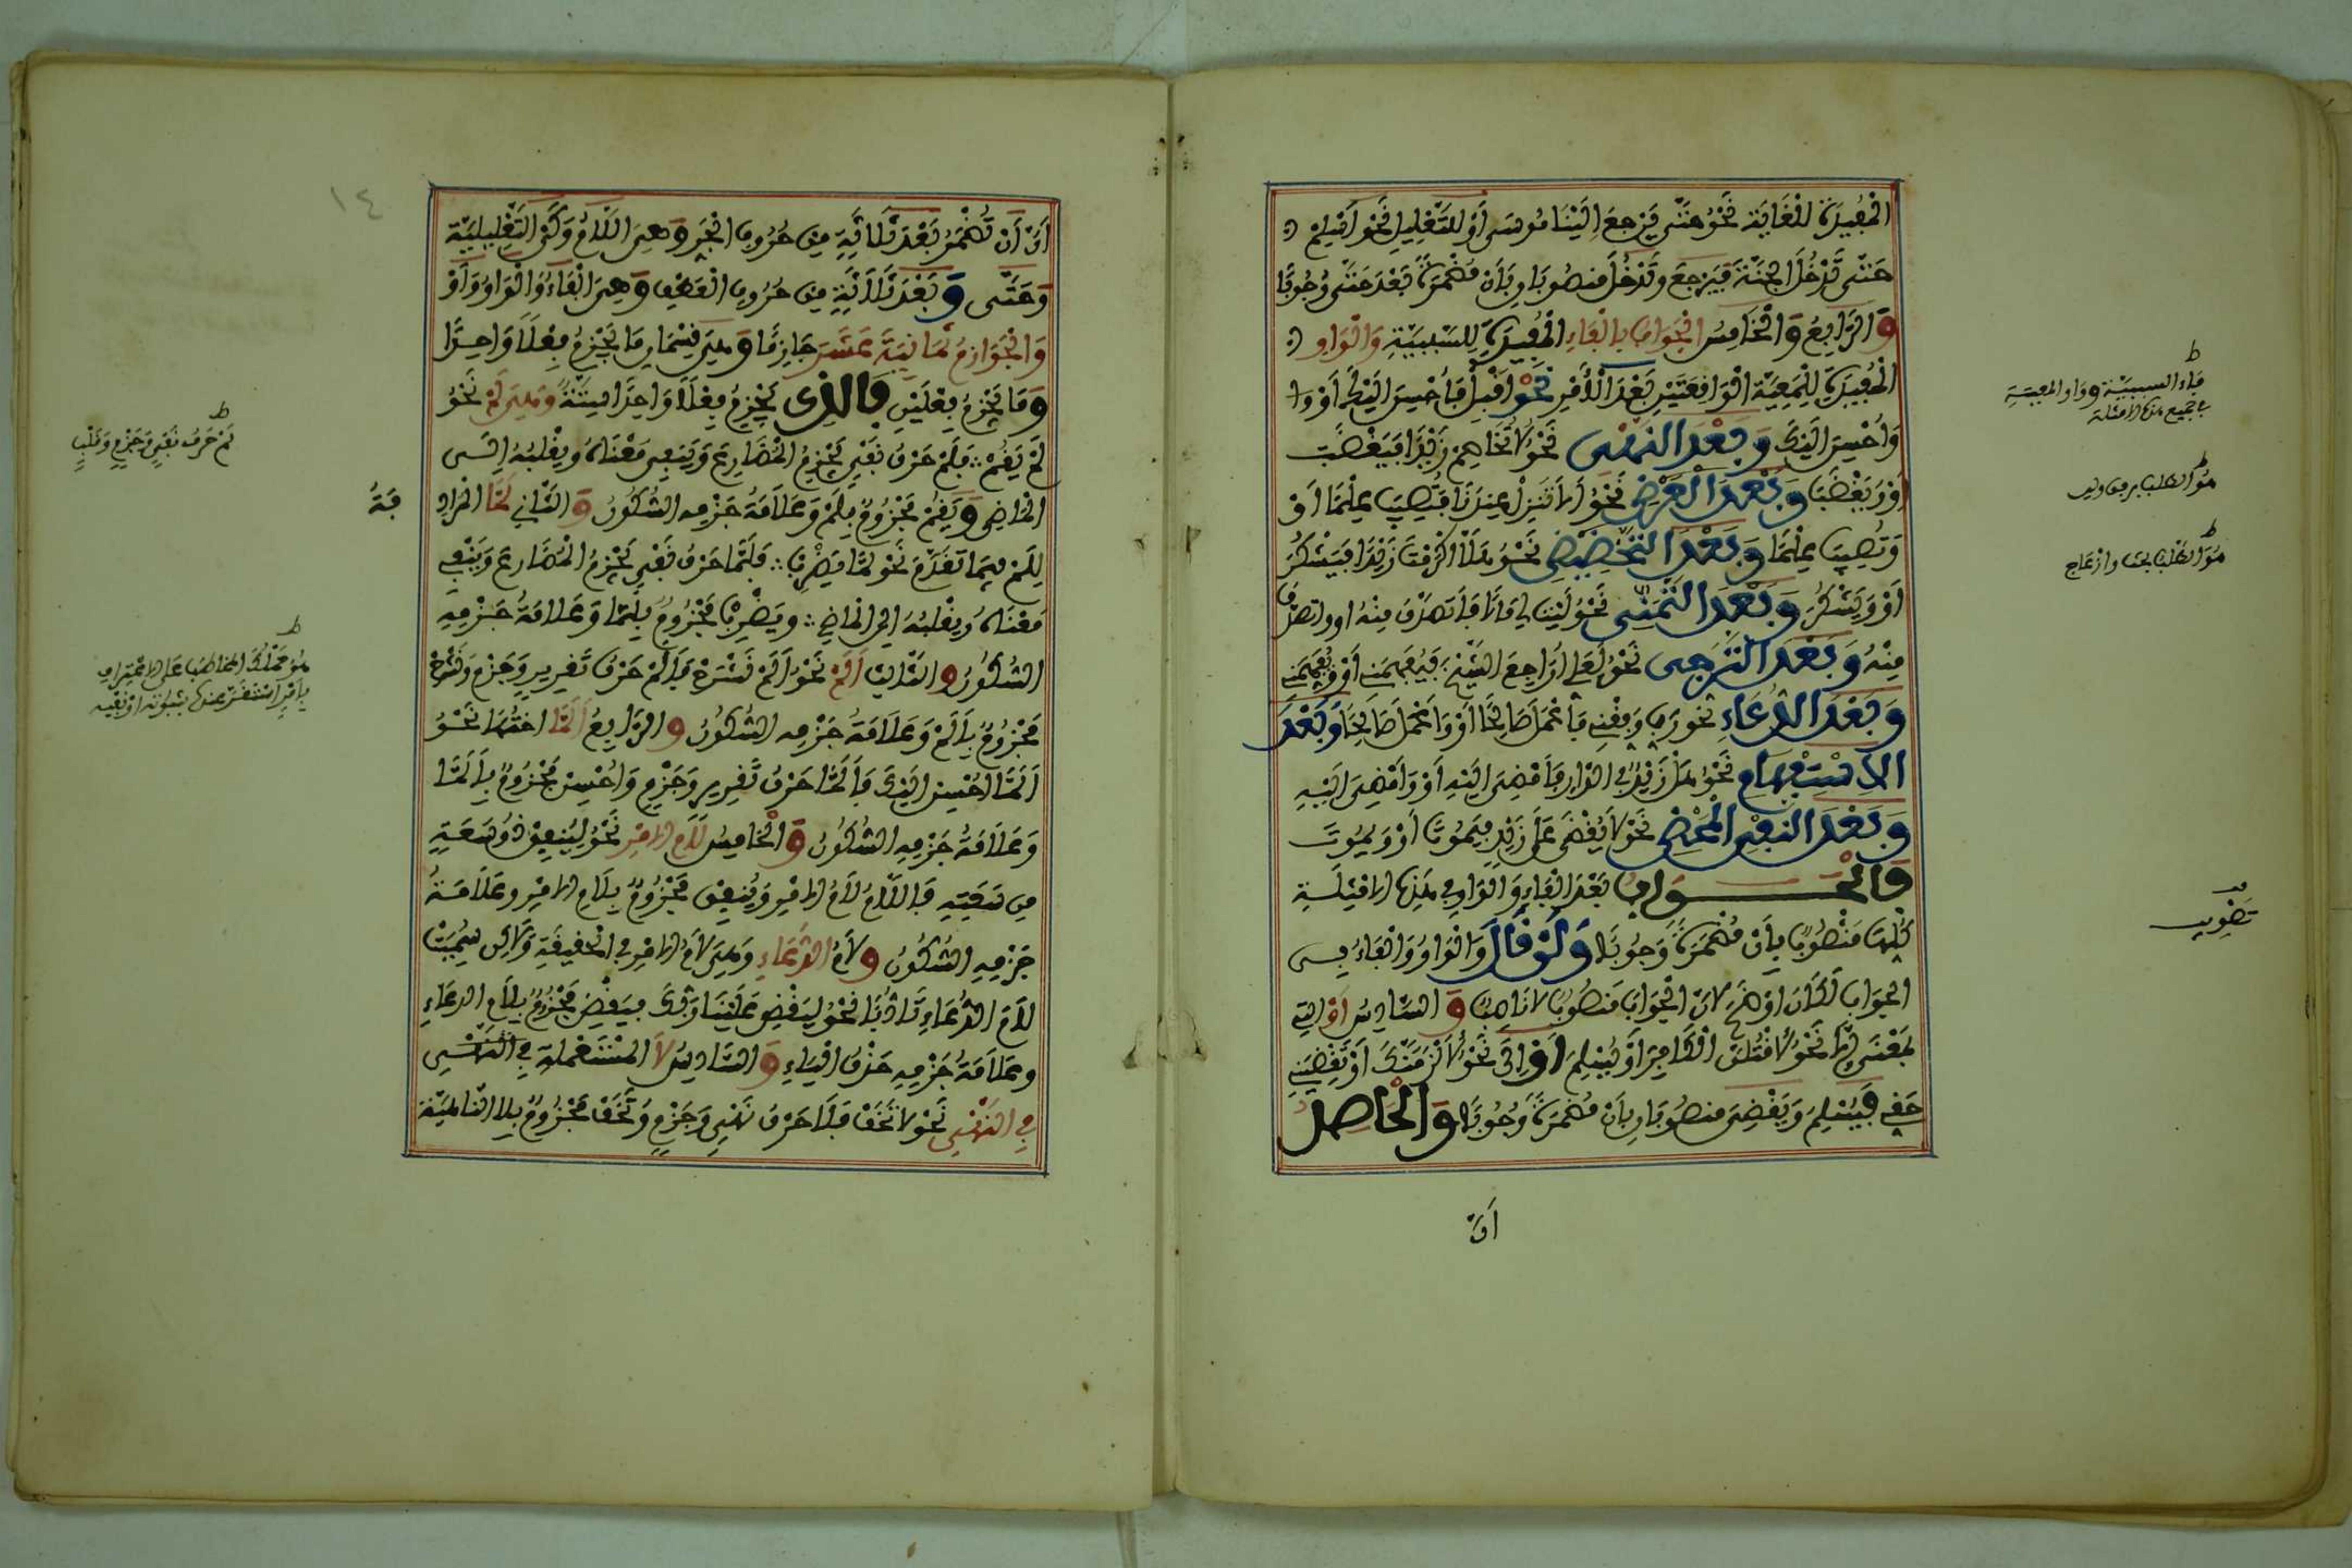 المفيدة للغاية نحو حتى يرجع إلينا موسى أو للتعليل نحو أسلم
حتى تدخل الجنة فيرجع وتدخل منصوبان بأن مضمرة بعد حتى وجوبا
والرابع والخامس الجواب بالفاء المفيدة للسببية والواو
المفيدة للمعية الواقعتين بعد الأمر نحو أقبل فأحسن إليك أو
وأحسن إليك وبعد النهي نحو لا تخاصم زيدا فيغضب
أو ويغضب وبعد العرض نحو ألا تنزل عندنا فتصيب علما أو
وتصيب علما وبعد التحضيض نحو هلا أكرمت زيدا فيشكر
أو ويشكر وبعد التمني نحو ليت لي مالا فأتصدق منه أو وأتصدق
منه وبعد الترجي نحو لعلي أراجع الشيخ فيفهمني أو ويفهمني
وبعد الدعاء نحو رب وفقني فأعمل صالحا أو وأعمل صالحا وبعد
الاستفهام نحو هل زيد في الدار فأمضي إليه أو وأمضي إليه
وبعد النفي المحض نحو لا يقضى على زيد فيموت أو ويموت
فالجواب بعد الفاء والواو في هذه الأمثلة
كلها منصوب بأن مضمرة وجوبا ولو قال والواو والفاء في
الجواب لكان أوضح لأن الجواب منصوب لا ناصب والسادس أو التي
بمعنى إلا نحو لأقتلن الكافر أو يسلم أو إلى نحو لألزمنك أو تقضيني
حقي فيسلم وتقضي منصوبان بأن مضمرة وجوبا والحاصل
أن
فاء السببية وواو المعية
في جميع هذه الأمثلة
هو الطلب برفق ولين
هو الطلب بحث وإزعاج
تصويب
١٤
أن أن تضمر بعد ثلاثة من حروف الجر وهي اللام وكي التعليلية
وحتى وبعد ثلاثة من حروف العطف وهي الفاء والواو وأو
والجوازم ثمانية عشر جازما وهي قسمان ما يجزم فعلا واحدا
وما يجزم فعلين فالذي يجزم فعلا واحدا ستة وهي لم نحو
لم يقم فلم حرف نفي يجزم المضارع وينفي معناه ويقلبه إلى
الماضي ويقم مجزوم بلم وعلامة جزمه السكون والثاني لما المراد
للم فيما تقدم نحو لما يضرب فلما حرف نفي يجزم المضارع وينفي
معناه ويقلبه إلى الماضي ويضرب مجزوم بلما وعلامة جزمه
السكون والثالث ألم نحو ألم نشرح فألم حرف تقرير وجزم ونشرح
مجزوم بألم وعلامة جزمه السكون والرابع ألما أختها نحو
ألما أحسن إليك فألما حرف تقرير وجزم وأحسن مجزوم بألما
وعلامة جزمه السكون والخامس لام الأمر نحو لينفق ذو سعة
من سعته فاللام لام الأمر وينفق مجزوم بلام الأمر وعلامة
جزمه السكون ولام الدعاء وهي لام الأمر في الحقيقة ولكن سميت
لام الدعاء تأدبا نحو ليقض علينا ربك فيقض مجزوم بلام الدعاء
وعلامة جزمه حذف الياء والسادس لا المستعملة في النهي
في النهي نحو لا تخف فلا حرف نهي وجزم وتخف مجزوم بلا الناهية
فة
لم حرف نفي وجزم وقلب
هو حملك المخاطب على الاعتراف
بأمر استقر عنده ثبوته أو نفيه